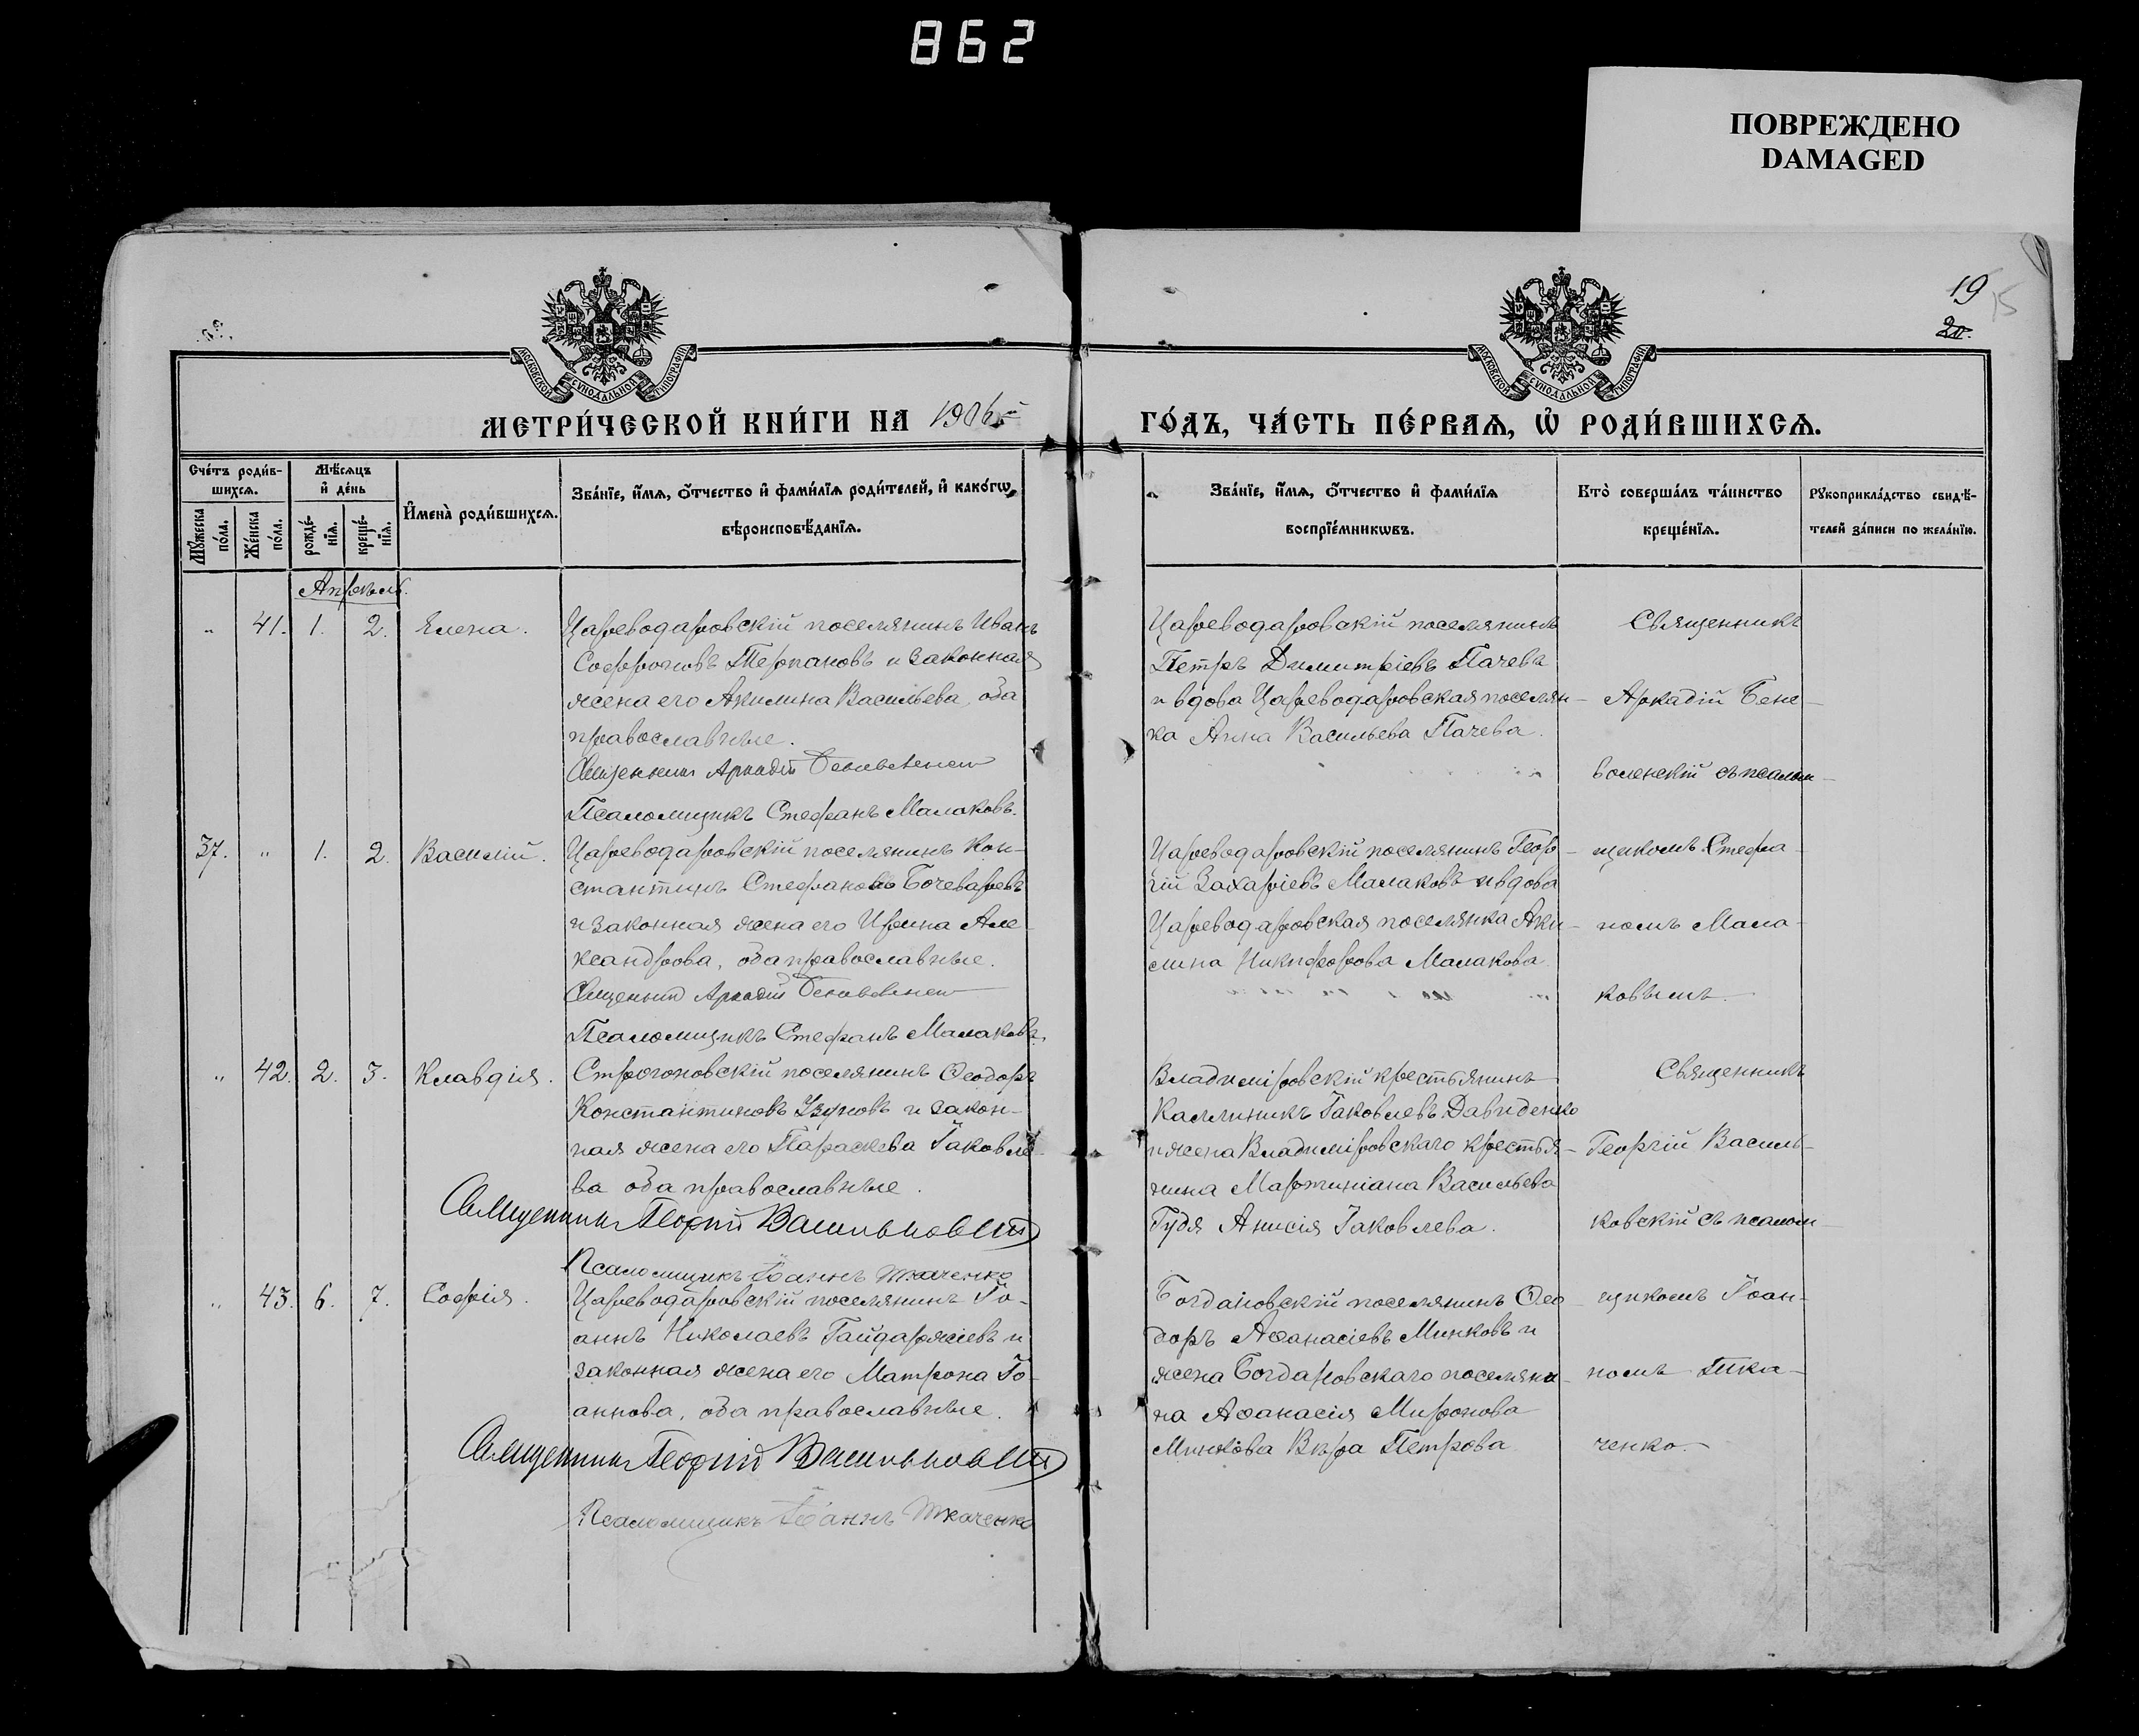 862
ПОВРЕЖДЕНО
DAMAGED
19
15
20.
МОСКОВСКОЙ СУНОДАЛЬНОЙ ТИПОГРАФІИ
МОСКОВСКОЙ СУНОДАЛЬНОЙ ТИПОГРАФІИ
МЕТРИ́ЧЕСКОЙ КНИ́ГИ НА 1906
ГО́ДЪ, ЧА́СТЬ ПЕ́РВАѦ, Ѡ҆ РОДИ́ВШИХСѦ.
Сче́тъ роди́в-
шихсѧ.
Мѣ́сѧцъ
и҆ де́нь
Мꙋ́жеска
по́ла.
Же́нска
по́ла.
рожде́-
нїѧ.
креще́-
нїѧ.
И҆мена̀ роди́вшихсѧ.
Зва́нїе, и҆́мѧ, ѻ҆́тчество и҆ фами́лїѧ роди́телей, и҆ како́гѡ
вѣроисповѣ́данїѧ.
Зва́нїе, и҆́мѧ, ѻ҆́тчество и҆ фами́лїѧ
воспрїе́мникѡвъ.
Кто̀ соверша́лъ та́инство
креще́нїѧ.
Рꙋкоприкла́дство свидѣ́-
телей за́писи по жела́нїю.
Апрѣль.
„ 41. 1. 2. Елена.
Цареводаровскій поселянинъ Иванъ
Софроновъ Терпановъ и законная
жена его Акилина Васильева, оба
православные.
Священникъ Аркадій Беневоленскій
Псаломщикъ Стефанъ Малаковъ.
Цареводаровскій поселянинъ
Петръ Димитріевъ Пачевъ
и вдова Цареводаровская поселян-
ка Анна Васильева Пачева.
Священникъ
Аркадій Бене-
воленскій съ псалом-
37. „ 1. 2. Василій.
Цареводаровскій поселянинъ Кон-
стантинъ Стефановъ Бочеваровъ
и законная жена его Ирина Але-
ксандрова, оба православные.
Священникъ Аркадій Беневоленскій
Псаломщикъ Стефанъ Малаковъ.
Цареводаровскій поселянинъ Геор-
гій Захаріевъ Малаковъ и вдова
Цареводаровская поселянка Аки-
лина Никифорова Малакова.
щикомъ Стефа-
номъ Мала-
ковымъ.
„ 42. 2. 3. Клавдія.
Строгоновскій поселянинъ Ѳеодоръ
Константиновъ Узуновъ и закон-
ная жена его Параскева Іаковле-
ва оба православные.
Священникъ Георгій Васильковскій
Псаломщикъ Іоаннъ Ткаченко
Владиміровскій крестьянинъ
Каллиникъ Іаковлевъ Давиденко
и жена Владиміровскаго крестья-
нина Мартиніана Васильева
Гудя Анисія Іаковлева.
Священникъ
Георгій Василь-
ковскій съ псалом-
„ 43. 6. 7. Софія.
Цареводаровскій поселянинъ Іо-
аннъ Николаевъ Гайдаржіевъ и
законная жена его Матрона Іо-
аннова, оба православные.
Священникъ Георгій Васильковскій
Псаломщикъ Іоаннъ Ткаченко
Богдановскій поселянинъ Ѳео-
доръ Аѳанасіевъ Минковъ и
жена Богдановскаго поселяни-
на Аѳанасія Миронова
Минкова Вѣра Петрова
щикомъ Іоан-
номъ Тка-
ченко.